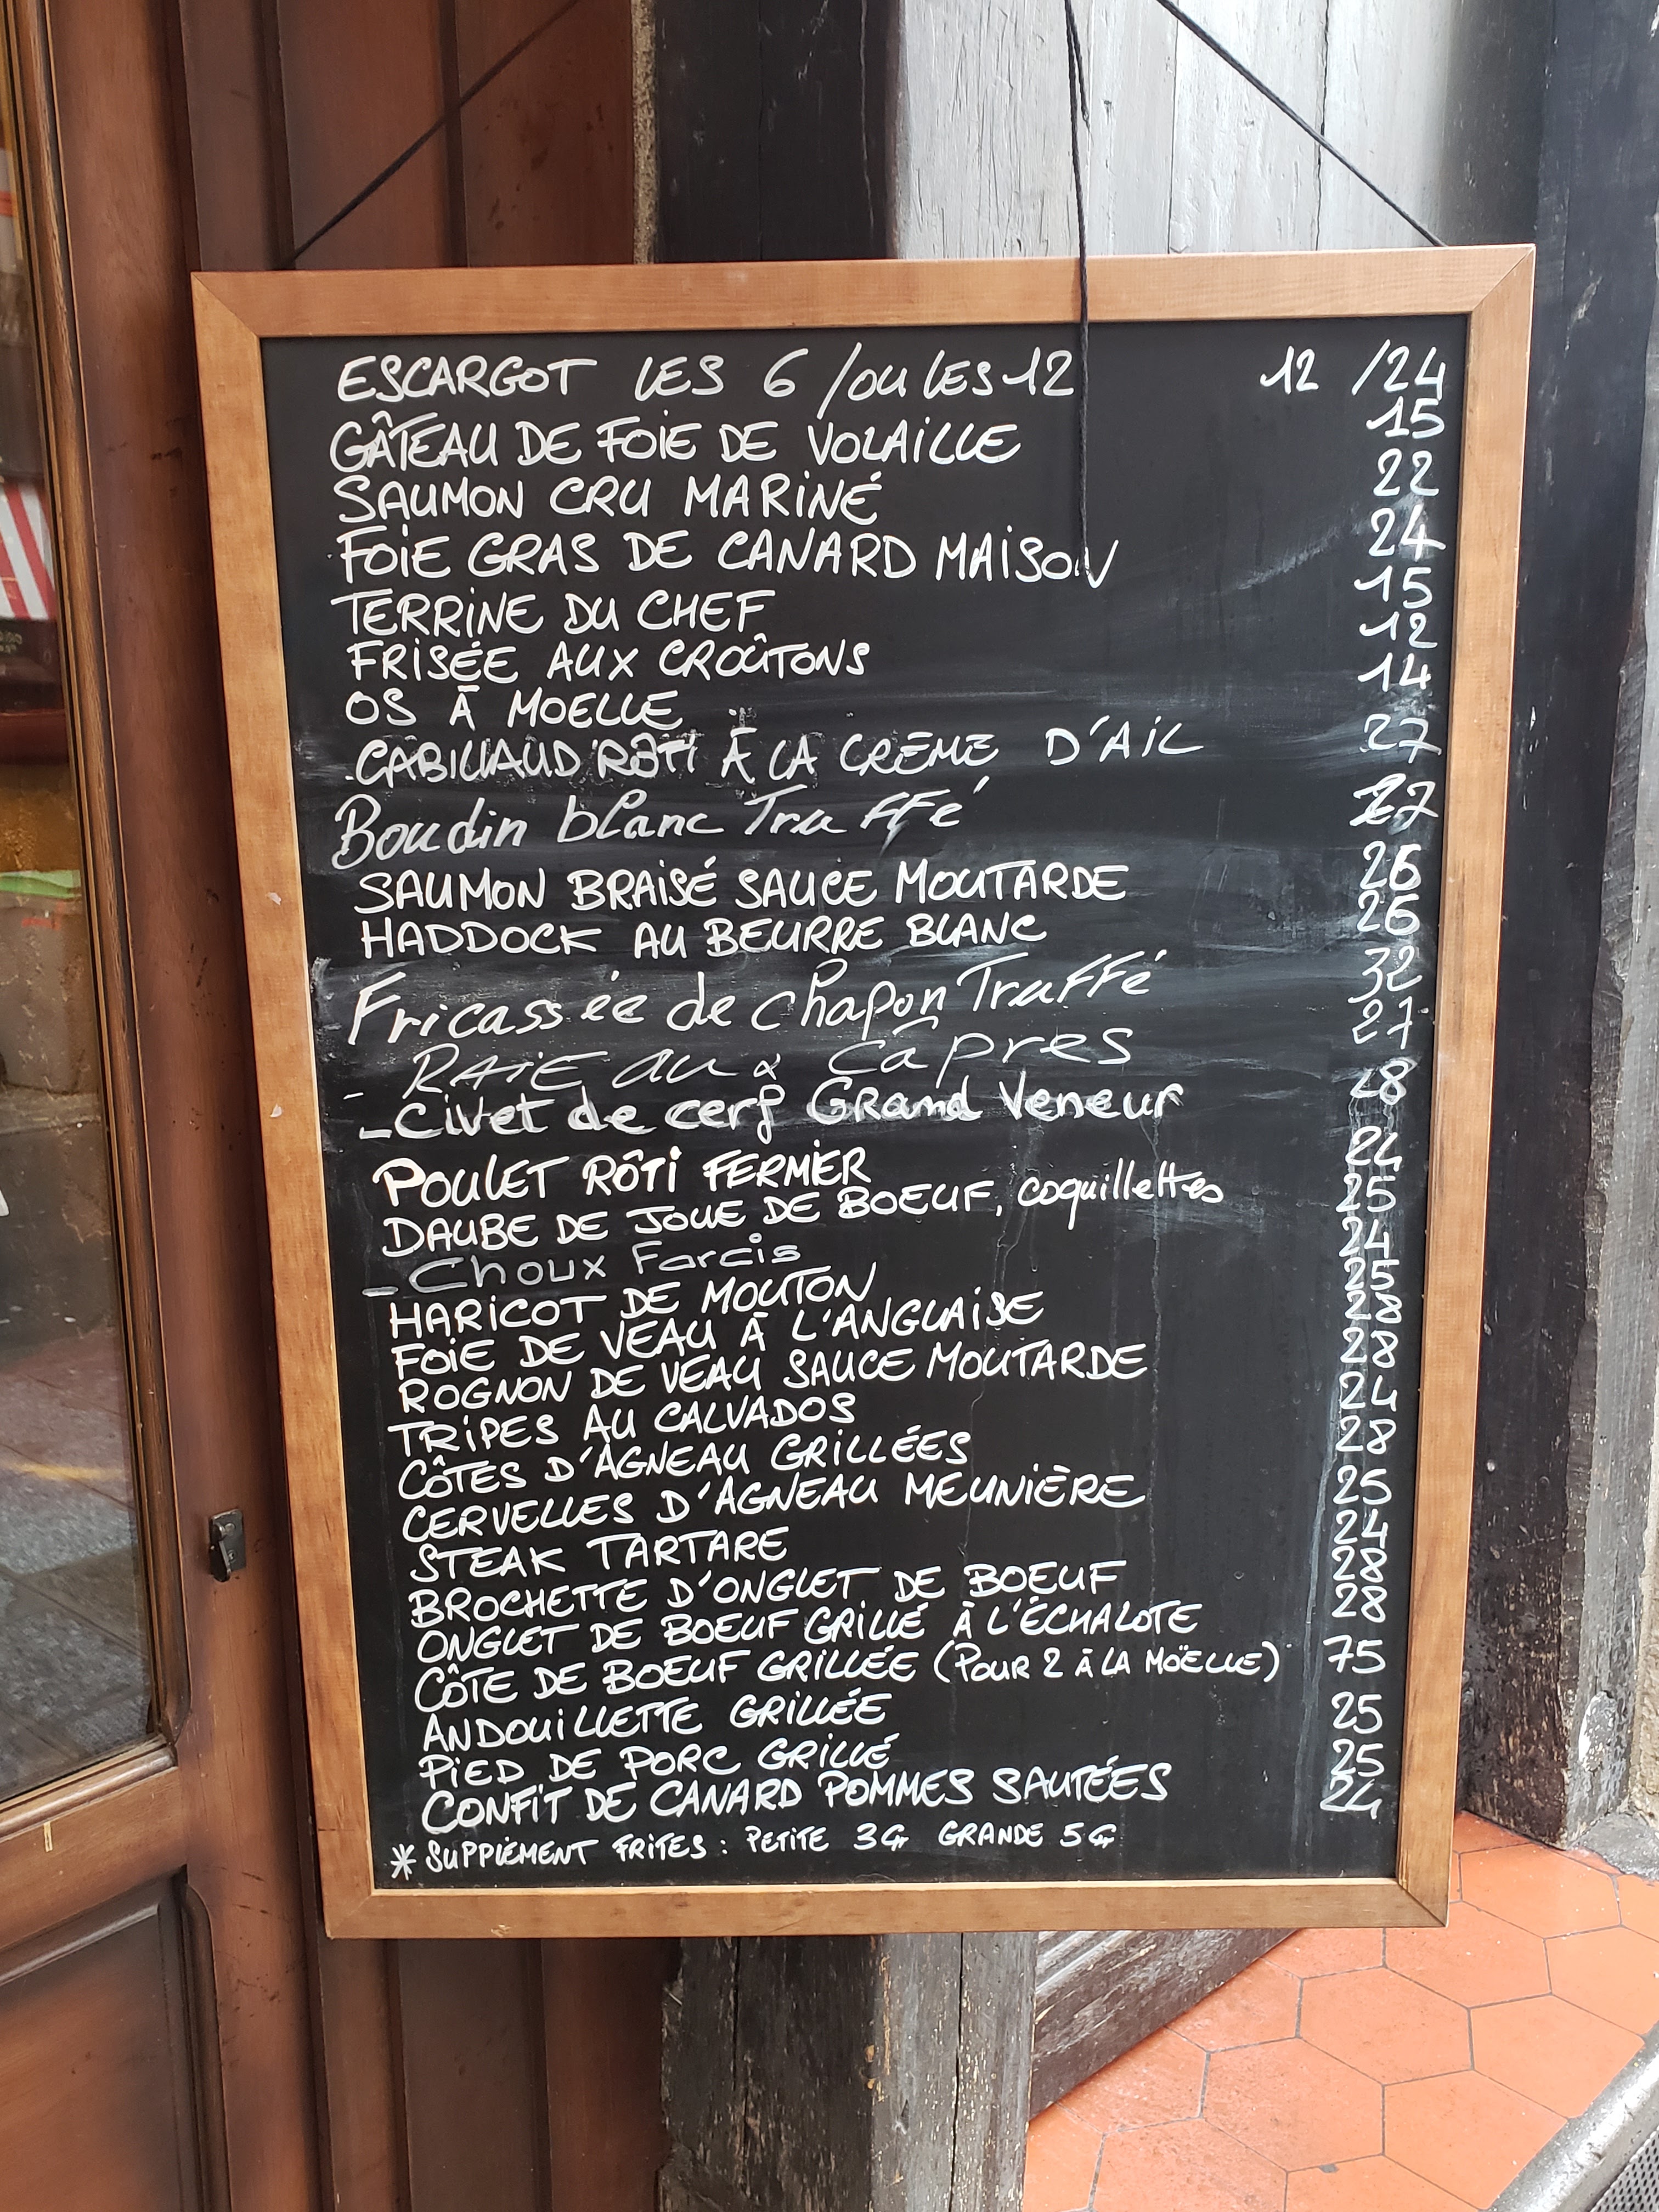 ESCARGOT LES 6 /OU LES 12 12 /24
GÂTEAU DE FOIE DE VOLAILLE 15
SAUMON CRU MARINÉ 22
FOIE GRAS DE CANARD MAISON 24
TERRINE DU CHEF 15
FRISÉE AUX CROÛTONS 12
OS À MOELLE 14
CABILLAUD RÔTI À LA CRÈME D'AIL 27
Boudin blanc Truffé 27
SAUMON BRAISÉ SAUCE MOUTARDE 26
HADDOCK AU BEURRE BLANC 26
Fricassée de chapon Truffé 32
- RAIE aux Câpres 27
- Civet de cerf Grand Veneur 28
POULET RÔTI FERMIER 24
DAUBE DE JOUE DE BOEUF, coquillettes 25
- Choux Farcis 24
HARICOT DE MOUTON 25
FOIE DE VEAU À L'ANGLAISE 28
ROGNON DE VEAU SAUCE MOUTARDE 28
TRIPES AU CALVADOS 24
CÔTES D'AGNEAU GRILLÉES 28
CERVELLES D'AGNEAU MEUNIÈRE 25
STEAK TARTARE 24
BROCHETTE D'ONGLET DE BOEUF 28
ONGLET DE BOEUF GRILLÉ À L'ÉCHALOTE 28
CÔTE DE BOEUF GRILLÉE (POUR 2 À LA MOËLLE) 75
ANDOUILLETTE GRILLÉE 25
PIED DE PORC GRILLÉ 25
CONFIT DE CANARD POMMES SAUTÉES 24
* SUPPLÉMENT FRITES : PETITE 3€ GRANDE 5€